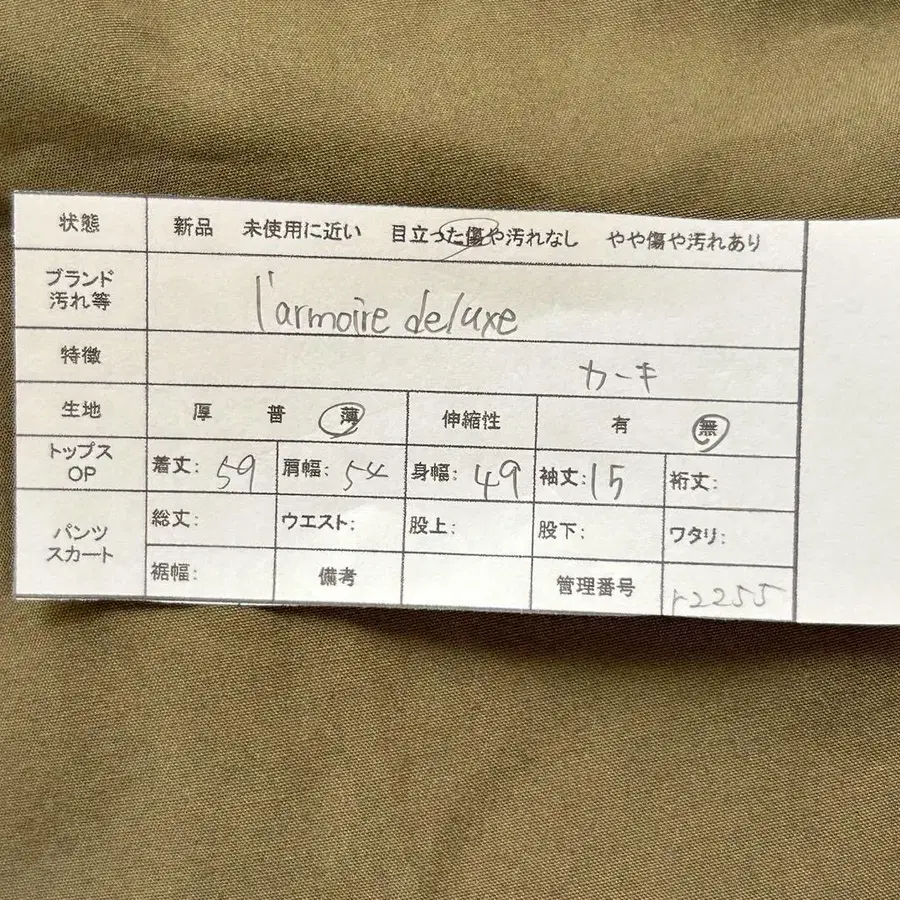 状態 新品 未使用に近い 目立った傷や汚れなし やや傷や汚れあり
ブランド
汚れ等
l'armoire deluxe
特徴 カーキ
生地 厚 普 薄 伸縮性 有 無
トップス
OP
着丈: 59 肩幅: 54 身幅: 49 袖丈: 15 裄丈:
パンツ
スカート
総丈: ウエスト: 股上: 股下: ワタリ:
裾幅: 備考 管理番号 r2255